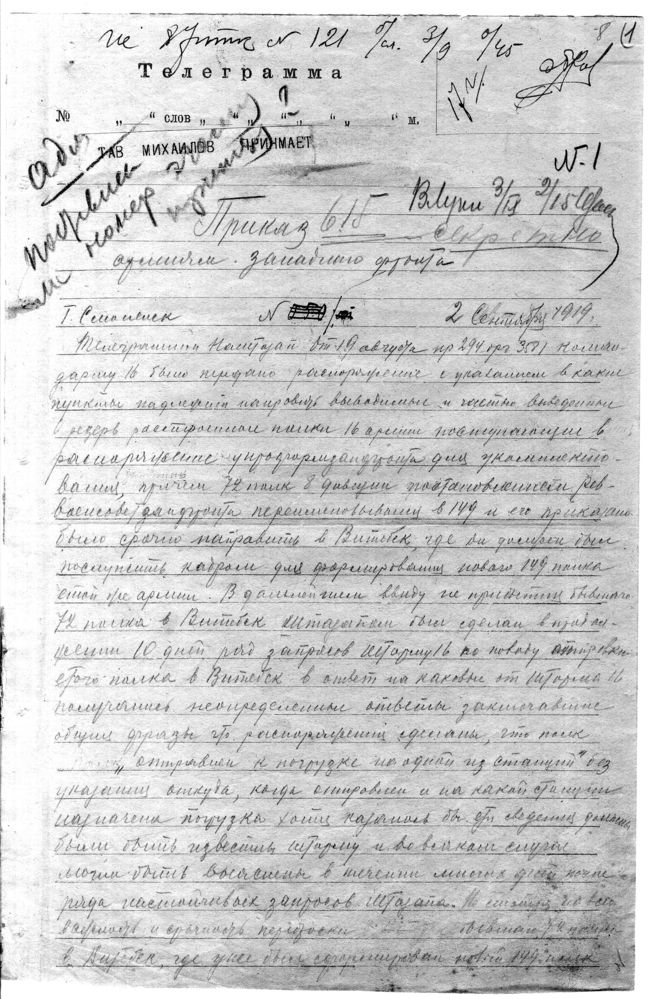 № 121
3/9
8 (1
Телеграмма
№ „ “ слов „ “ „ “ „ “ м.
17 ч.
ТАВ МИХАИЛОВ ПРИМАЕТ
N-1
номер
В Луки 3/IX 2/15
Приказ 615 секретно
армиям западного фронта
Г. Смоленск N 2 Сентября 1919.
Телеграммой Наштазап от 19 августа нр 294 3581 коман-
дарму 16 было передано распоряжение с указанием в какие
пункты надлежит направить выводимые и частью выведенные
в резерв расстроенные полки 16 армии поступающие в
распоряжение для укомплекто-
вания, причем 72 полк 8 дивизии постановлением Рев-
военсовета переименовывался в 149 и его приказано
было срочно направить в Витебск где он должен был
послужить кадром для формирования нового 149 полка
этой же армии. В дальнейшем ввиду не прибытия бывшего
72 полка в Витебск Штазапом был сделан в продол-
жении 10 дней ряд запросов Штарму 16 по поводу отправки
этого полка в Витебск в ответ на каковые от Штарма 16
получались неопределенные ответы заключавшие
общие фразы распоряжения сделаны, что полк
„отправлен к погрузке на одной из станций“ без
указания откуда, когда отправлен и на какой станции
назначена погрузка хотя казалось бы эти сведения должны
были быть известны Штарму и во всяком случае
могли быть выяснены в течении многих дней после
ряда настойчивых запросов Штазапа. Не смотря на всю
важность и срочность переброски бывшего 72 полка
в Витебск, где уже был сформирован новый 149 полк